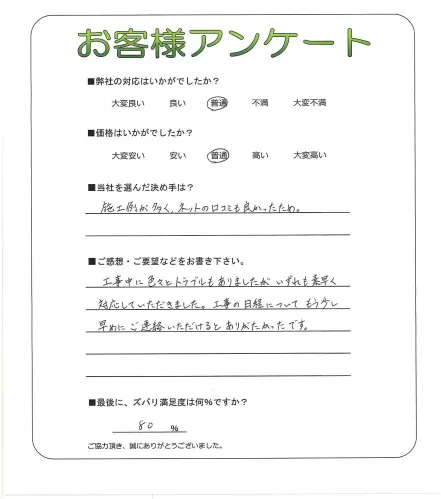 お客様アンケート
■弊社の対応はいかがでしたか？
大変良い 良い 普通 不満 大変不満
■価格はいかがでしたか？
大変安い 安い 普通 高い 大変高い
■当社を選んだ決め手は？
施工例が多く、ネットの口コミも良かったため。
■ご感想・ご要望などをお書き下さい。
工事中に色々とトラブルもありましたが いずれも素早く
対応していただきました。工事の日程について もう少し
早めに ご連絡いただけると ありがたかったです。
■最後に、ズバリ満足度は何％ですか？
80 ％
ご協力頂き、誠にありがとうございました。